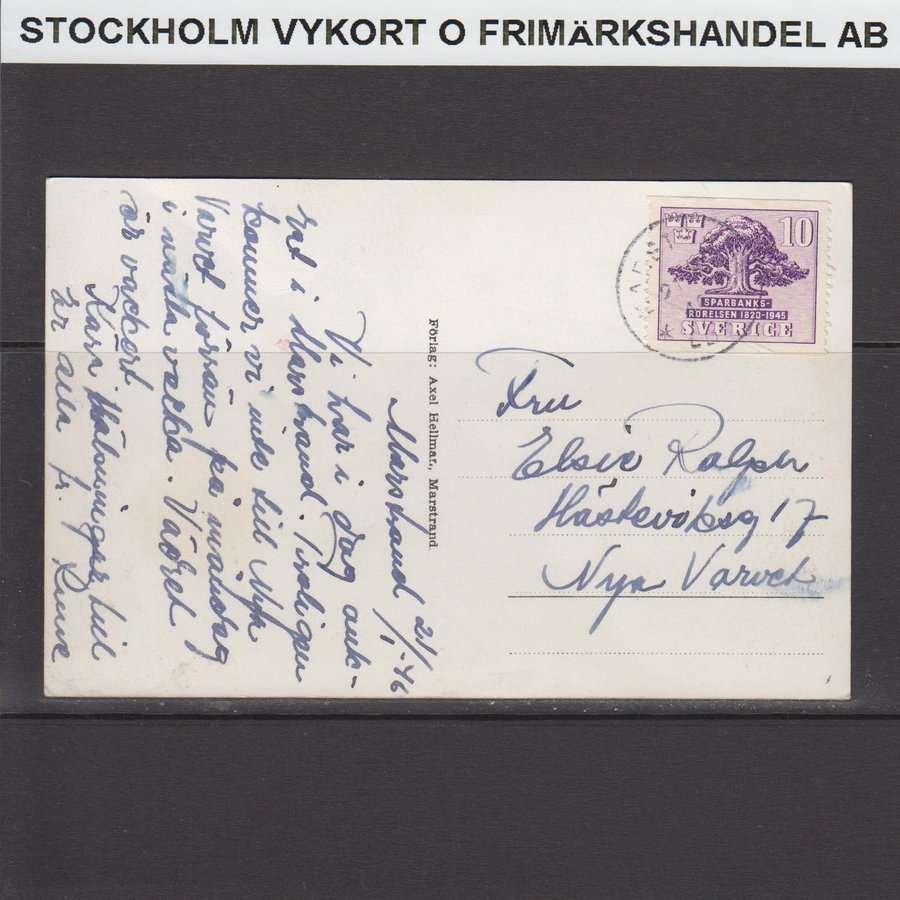 STOCKHOLM VYKORT O FRIMÄRKSHANDEL AB
Marstrand 21/1 -46
Vi har i dag ank-
rat i Marstrand. Troligen
kommer vi inte till Nya
Varvet förrän på måndag
i nästa vecka. Vädret
är vackert.
Kära hälsningar till
Er alla fr. Rune
Förlag: Axel Hellman, Marstrand.
10
SPARBANKS-
RÖRELSEN 1820-1945
SVERIGE
Fru
Elsie
17
Nya Varvet